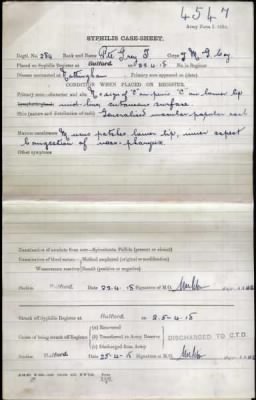 4547
Army Form I. 1247.
SYPHILIS CASE-SHEET.
Regtl. No. 284 Rank and Name Pte Grey F Corps M G Coy
Placed on Syphilis Register at Bulford on 22.4.18 No. in Register
Disease contracted at Nottingham Primary sore appeared on (date)
CONDITION WHEN PLACED ON REGISTER.
Primary sore—character and site No sign of on penis on lower lip
mid-line cutaneous surface
Skin (nature and distribution of rash) Generalised macular-papular rash
Mucous membranes M mem patches lower lip, inner aspect
Congestion of naso-pharynx.
Other symptoms
Examination of exudate from sore—Spirochaeta Pallida (present or absent)
Examination of blood serum—Method employed (original or modification)
Wassermann reaction Result (positive or negative)
Station Bulford Date 22-4-18 Signature of M.O.
Struck off Syphilis Register at Bulford on 25-4-18
(a) Recovered
Cause of being struck off Register (b) Transferred to Army Reserve DISCHARGED TO C.T.D.
(c) Discharged from Army
Station Bulford Date 25-4-18 Signature of M.O.